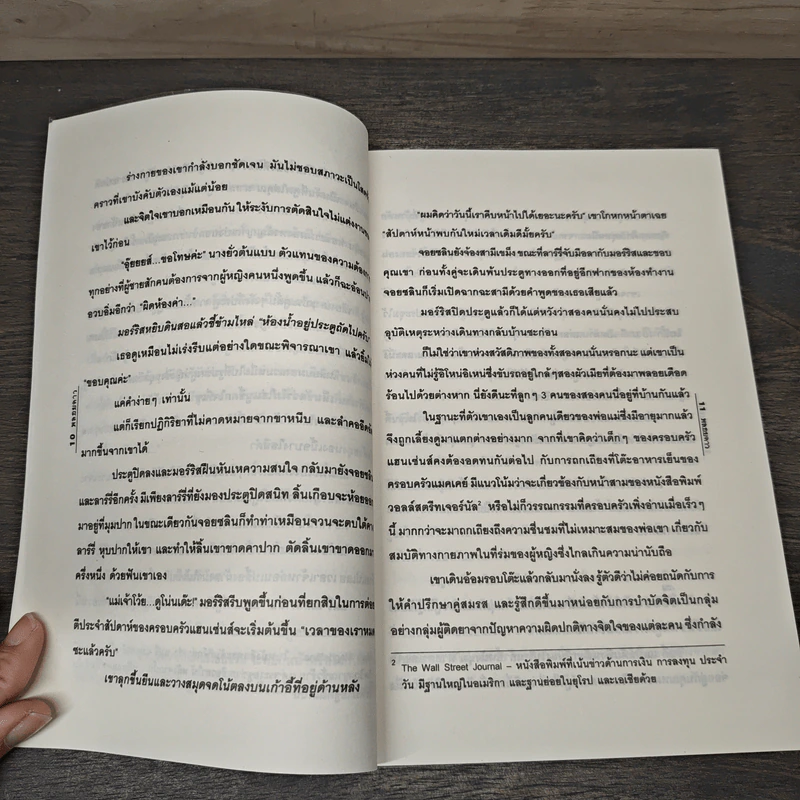 ร่างกายของเขากำลังบอกชัดเจน มันไม่ชอบสภาวะเป็นโสด
คราวที่เขาบังคับตัวเองแม้แต่น้อย
และจิตใจเขาบอกเหมือนกัน ให้ระงับการตัดสินใจไม่แต่งงาน
เขาไว้ก่อน
"อุ๊ยยยส์...ขอโทษค่ะ" นางยั่วต้นแบบ ตัวแทนของความต้องการ
ทุกอย่างที่ผู้ชายสักคนต้องการจากผู้หญิงคนหนึ่งพูดขึ้น แล้วก็ฉะอ้อน
อวบอิ่มอีกว่า "ผิดห้องค่า..."
มอร์ริสหยิบดินสอแล้วชี้ข้ามไหล่ "ห้องน้ำอยู่ประตูถัดไปครับ"
เธอดูเหมือนไม่เร่งรีบแต่อย่างใดขณะพิจารณาเขา แล้วยิ้ม
"ขอบคุณค่ะ"
แค่คำง่ายๆ เท่านั้น
แต่ก็เรียกปฏิกิริยาที่ไม่คาดหมายจากขาหนีบ และลำคออีก
มากขึ้นจากเขาได้
ประตูปิดลงและมอร์ริสฝืนหันเหความสนใจ กลับมายังจอยซลิน
และลาร์รี่อีกครั้ง มีเพียงลาร์รี่ที่ยังมองประตูปิดสนิท ลิ้นเกือบจะห้อยออก
มาอยู่ที่มุมปาก ในขณะเดียวกันจอยซลินก็ทำท่าเหมือนจวนจะตบใต้คาง
ลาร์รี่ หุบปากให้เขา และทำให้ลิ้นเขาขาดคาปาก ตัดลิ้นเขาขาดออกมา
ครึ่งหนึ่ง ด้วยฟันเขาเอง
"แม่เจ้าโว้ย...ดูโน่นเด๊ะ!" มอร์ริสรีบพูดขึ้นก่อนที่ยกสิบในการต่อย
ตีประจำสัปดาห์ของครอบครัวแฮนเซ่นส์จะเริ่มต้นขึ้น "เวลาของเราหมด
ซะแล้วครับ"
เขาลุกขึ้นยืนและวางสมุดจดโน้ตลงบนเก้าอี้ที่อยู่ด้านหลัง
10 พลอยดาว
"ผมคิดว่าวันนี้เราคืบหน้าไปได้เยอะนะครับ" เขาโกหกหน้าตาเฉย
"สัปดาห์หน้าพบกันใหม่เวลาเดิมดีมั้ยครับ"
จอยซลินยังจ้องสามีเขม็ง ขณะที่ลาร์รี่จับมือลากับมอร์ริสและขอบ
คุณเขา ก่อนทั้งคู่จะเดินพ้นประตูทางออกที่อยู่อีกฟากของห้องทำงาน
จอยซลินก็เริ่มเปิดฉากฉะสามีด้วยคำพูดของเธอเสียแล้ว
มอร์ริสปิดประตูแล้วก็ได้แต่หวังว่าสองคนนั่นคงไม่ไปประสบ
อุบัติเหตุระหว่างเดินทางกลับบ้านซะก่อน
ก็ไม่ใช่ว่าเขาห่วงสวัสดิภาพของทั้งสองคนนั่นหรอกนะ แต่เขาเป็น
ห่วงคนที่ไม่รู้อิโหน่อิเหน่ซึ่งขับรถอยู่ใกล้ๆ สองผัวเมียที่ต้องมาพลอยเดือด
ร้อนไปด้วยต่างหาก นี่ยังดีนะที่ลูกๆ 3 คนของสองคนนี้อยู่ที่บ้านกันแล้ว
ในฐานะที่ตัวเขาเองเป็นลูกคนเดียวของพ่อแม่ซึ่งมีอายุมากแล้ว
จึงถูกเลี้ยงดูมาแตกต่างอย่างมาก จากที่เขาคิดว่าเด็กๆ ของครอบครัว
แฮนเซ่นส์คงต้องอดทนกันต่อไป กับการถกเถียงที่โต๊ะอาหารเย็นของ
ครอบครัวแมคเคย์ มีแนวโน้มว่าจะเกี่ยวข้องกับหน้าสามของหนังสือพิมพ์
วอลล์สตรีทเจอร์นัล² หรือไม่ก็วรรณกรรมที่ครอบครัวเพิ่งอ่านเมื่อเร็วๆ
นี้ มากกว่าจะมาถกเถียงถึงความชื่นชมที่ไม่เหมาะสมของพ่อเขา เกี่ยวกับ
สมบัติทางกายภาพในที่ร่มของผู้หญิงซึ่งไกลเกินความน่านับถือ
เขาเดินอ้อมรอบโต๊ะแล้วกลับมานั่งลง รู้ตัวดีว่าไม่ค่อยถนัดกับการ
ให้คำปรึกษาคู่สมรส และรู้สึกดีขึ้นมาหน่อยกับการบำบัดจิตเป็นกลุ่ม
อย่างกลุ่มผู้ติดยาจากปัญหาความผิดปกติทางจิตใจของแต่ละคน ซึ่งกำลัง
² The Wall Street Journal – หนังสือพิมพ์ที่เน้นข่าวด้านการเงิน การลงทุน ประจำ
วัน มีฐานใหญ่ในอเมริกา และฐานย่อยในยุโรป และเอเชียด้วย
11 พลอยดาว